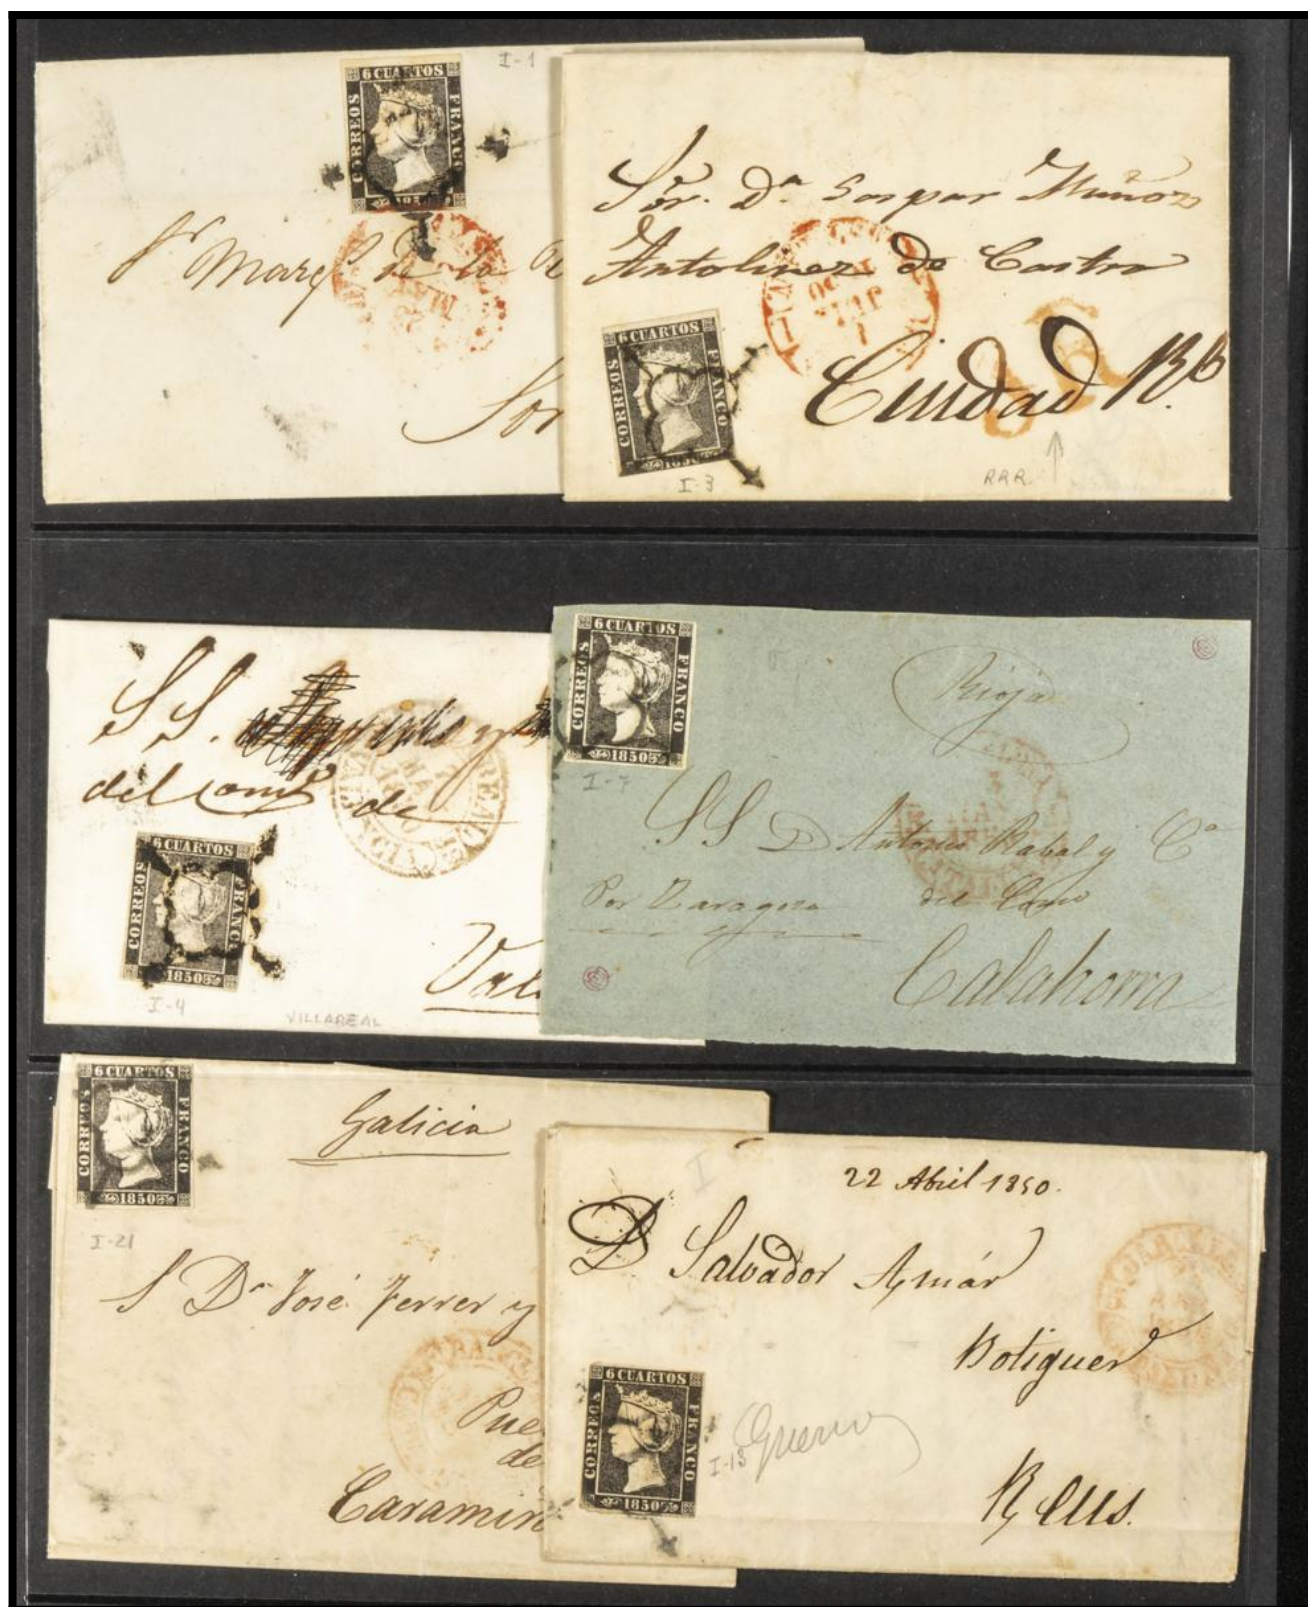 I-1
6 CUARTOS
CORREOS
FRANCO
1850
Sr Marqs de la
Sor
Sor. Dn Gaspar Muñoz
Antolinez de Castro
Ciudad Rl
6 CUARTOS
CORREOS
FRANCO
1850
I-3
RRR.
S S.
del Com° de
6 CUARTOS
CORREOS
FRANCO
1850
I-4
VILLAREAL
Val
6 CUARTOS
CORREOS
FRANCO
1850
I-7
Rioja
S S D Antonio Rabal y Ca
Por Zaragoza del Como
Calahorra
6 CUARTOS
CORREOS
FRANCO
1850
I-21
Galicia
S Dn José Ferrer y
Pue
de
Caramin
I
22 Abril 1850.
D Salvador Aymár
Botiguer
Reus.
6 CUARTOS
CORREOS
FRANCO
1850
I-13